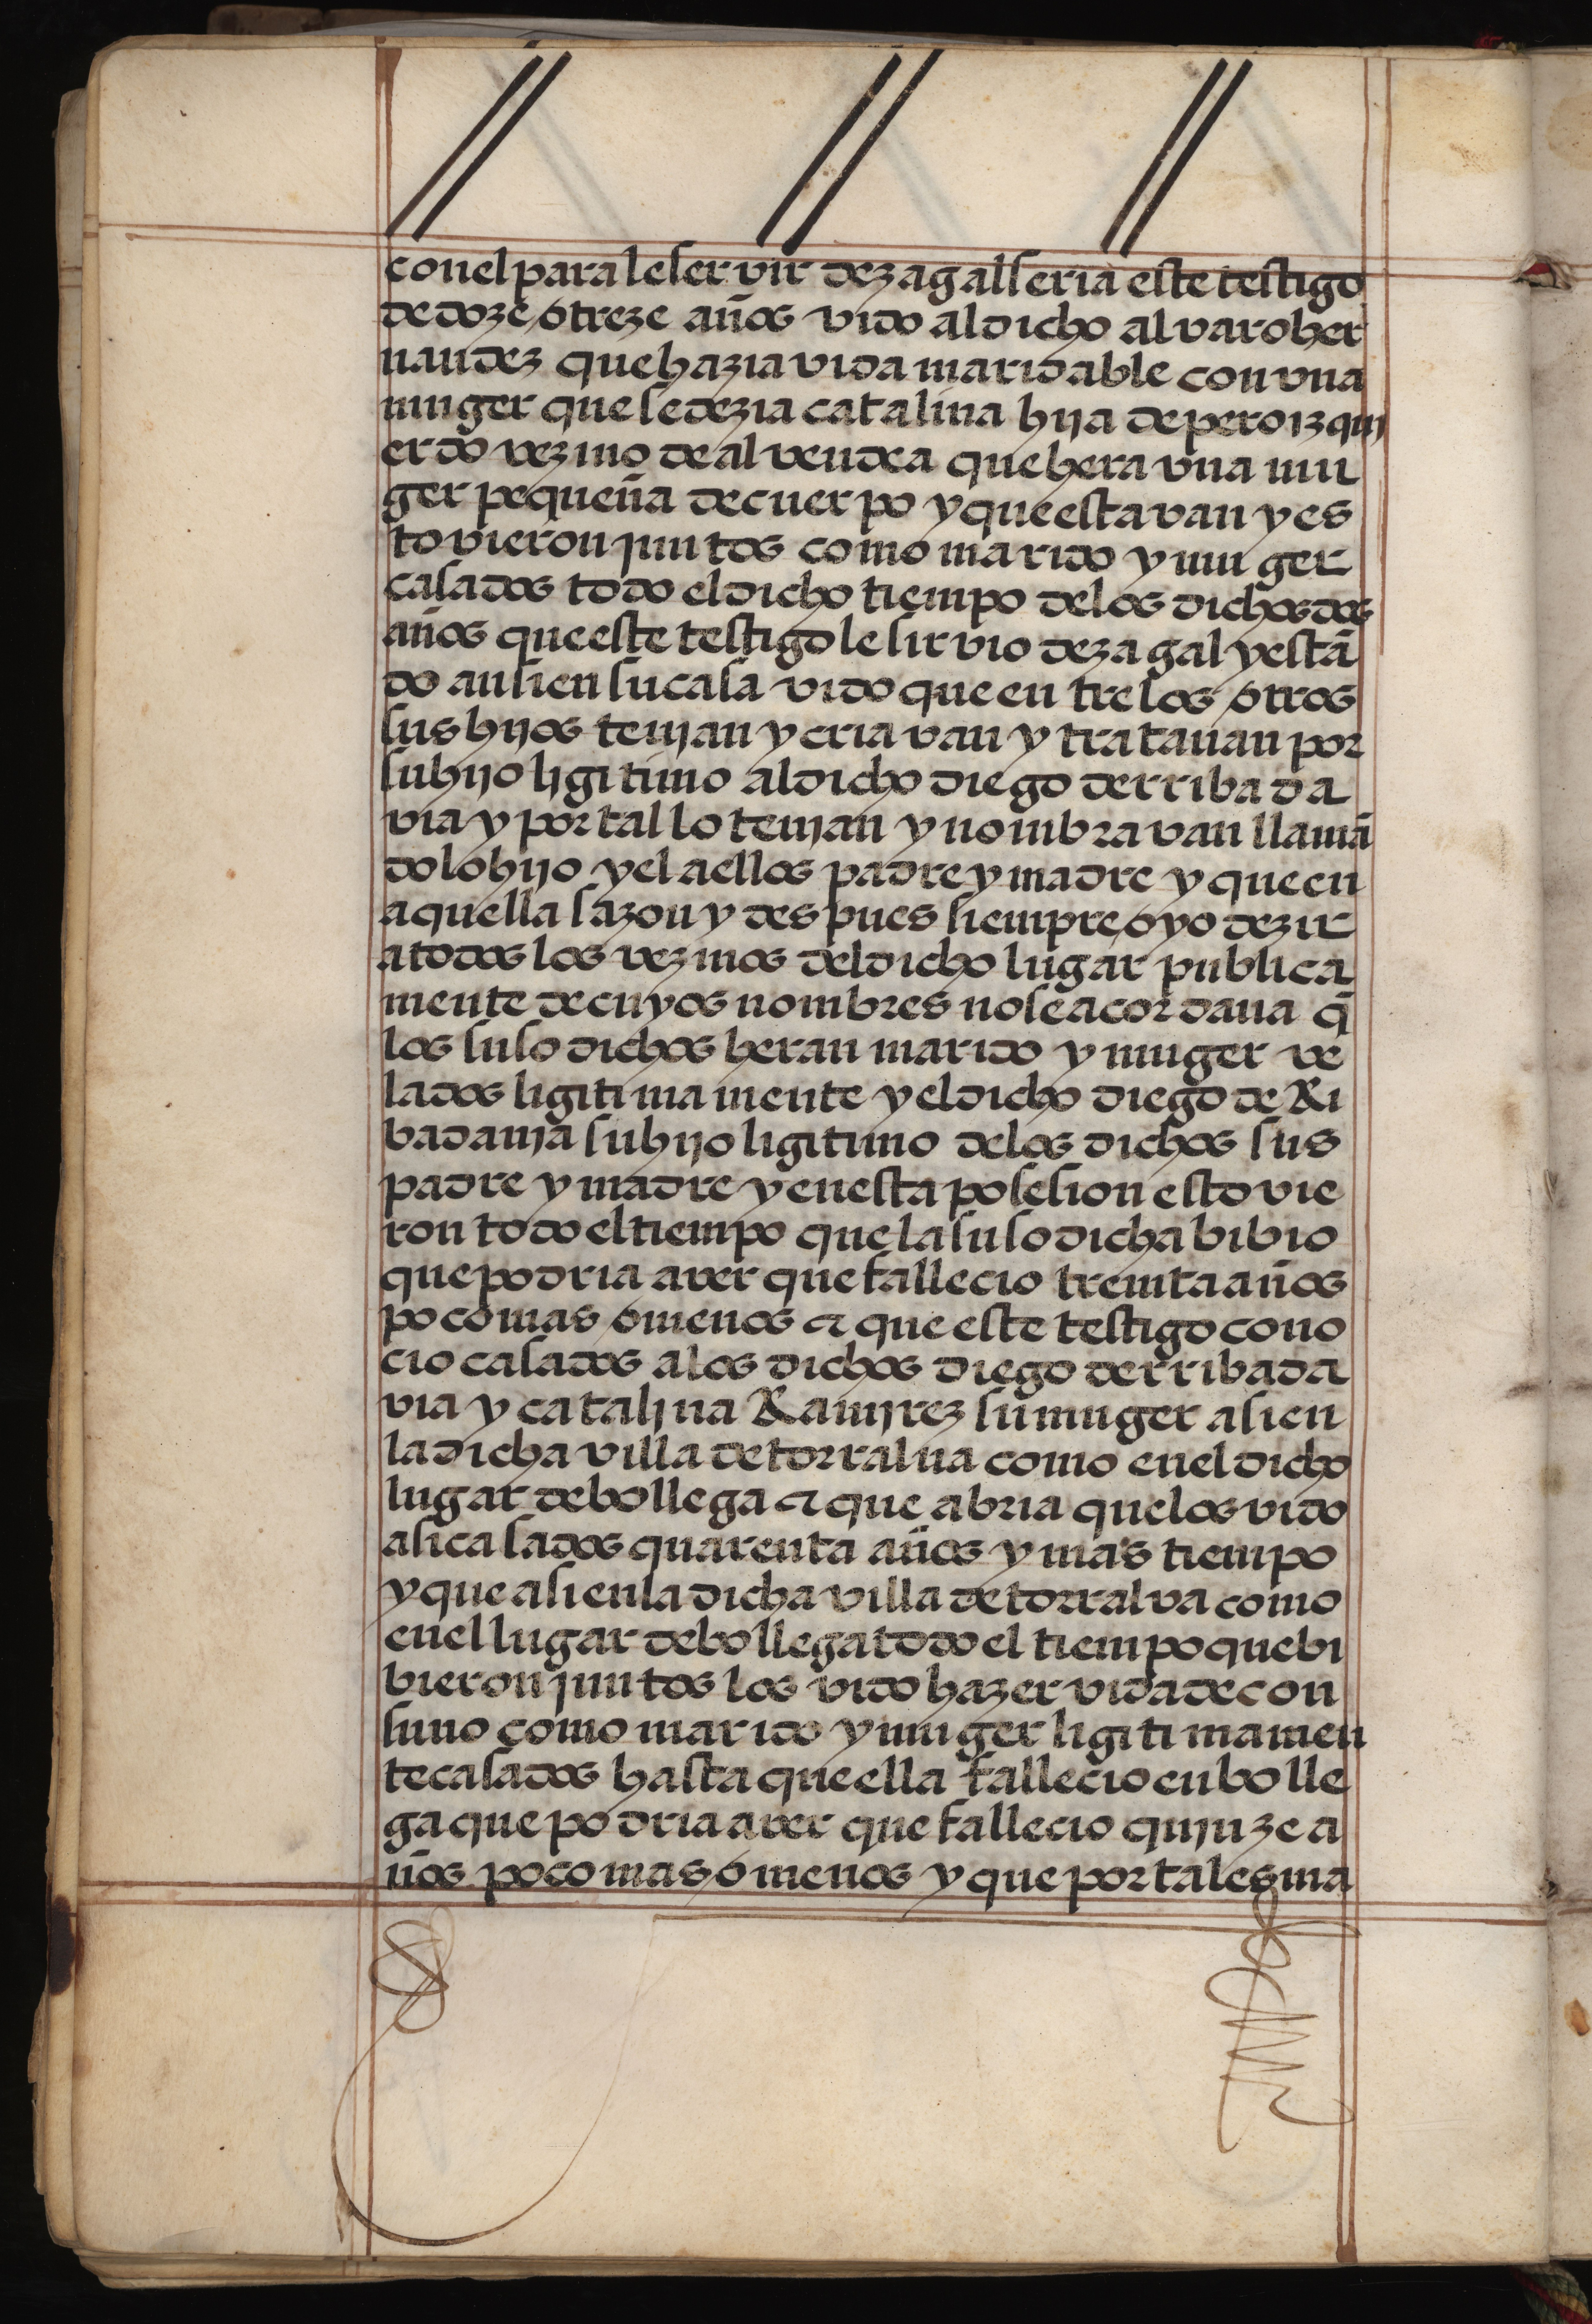 con el para le servir de zagal seria este testigo
de doze o treze años vido al dicho alvaro her
nandez que hazia vida maridable con vna
muger que se dezia catalina hija de pero izqui
erdo vezino de alvendea que hera vna mu
ger pequeña de cuerpo y que estavan y es
tovieron juntos como marido y muger
casados todo el dicho tiempo de los dichos dos
años que este testigo le sirvio de zagal y estã
do ansi en su casa vido que entre los otros
sus hijos tenjan y criavan y tratauan por
su hijo ligitimo al dicho diego de rribada
via y por tal lo tenjan y nombravan llamã
dolo hijo y el a ellos padre y madre y que en
aquella sazon y despues siempre oyo dezir
a todos los vezinos del dicho lugar publica
mente de cuyos nombres no se acordaua q̃
los suso dichos heran marido y muger ve
lados ligitimamente y el dicho diego de Ri
badauja su hijo ligitimo de los dichos sus
padre y madre y en esta posesion estovie
ron todo el tiempo que la suso dicha bibio
que podria aver que fallecio treinta años
poco mas o menos & que este testigo cono
cio casados a los dichos diego de rribada
via y catalina Ramjrez su muger asi en
la dicha villa de torralua como en el dicho
lugar de bollega & que abria que los vido
asi casados quarenta años y mas tiempo
y que asi en la dicha villa de torralva como
en el lugar de bollega todo el tiempo que bi
bieron juntos los vido hazer vida de con
suno como marido y muger ligitimamen
te casados hasta que ella fallecio en bolle
ga que podria aver que fallecio qujnze a
ños poco mas o menos y que por tales ma